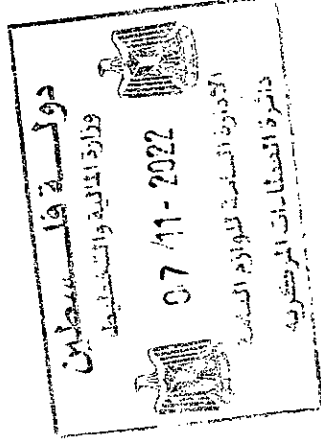 دولة فلسطين
وزارة المالية والتخطيط
07 -11- 2022
الادارة العامة للوازم العامة
دائرة العطاءات المركزية